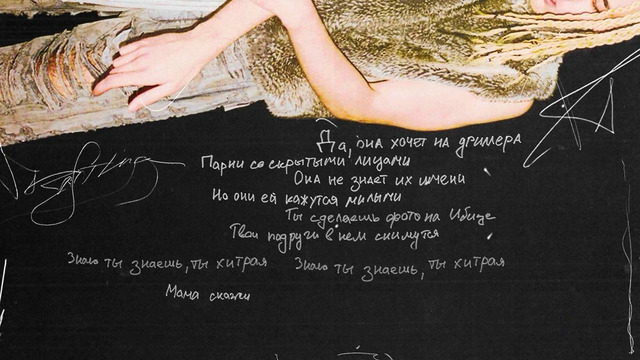 Да, она хочет на дриллера
Парни со скрытыми лицами
Она не знает их имени
Но они ей кажутся милыми
Ты сделаешь фото на Ибице
Твои подруги в нем снимутся
Знаю ты знаешь, ты хитрая Знаю ты знаешь, ты хитрая
Мама скажи